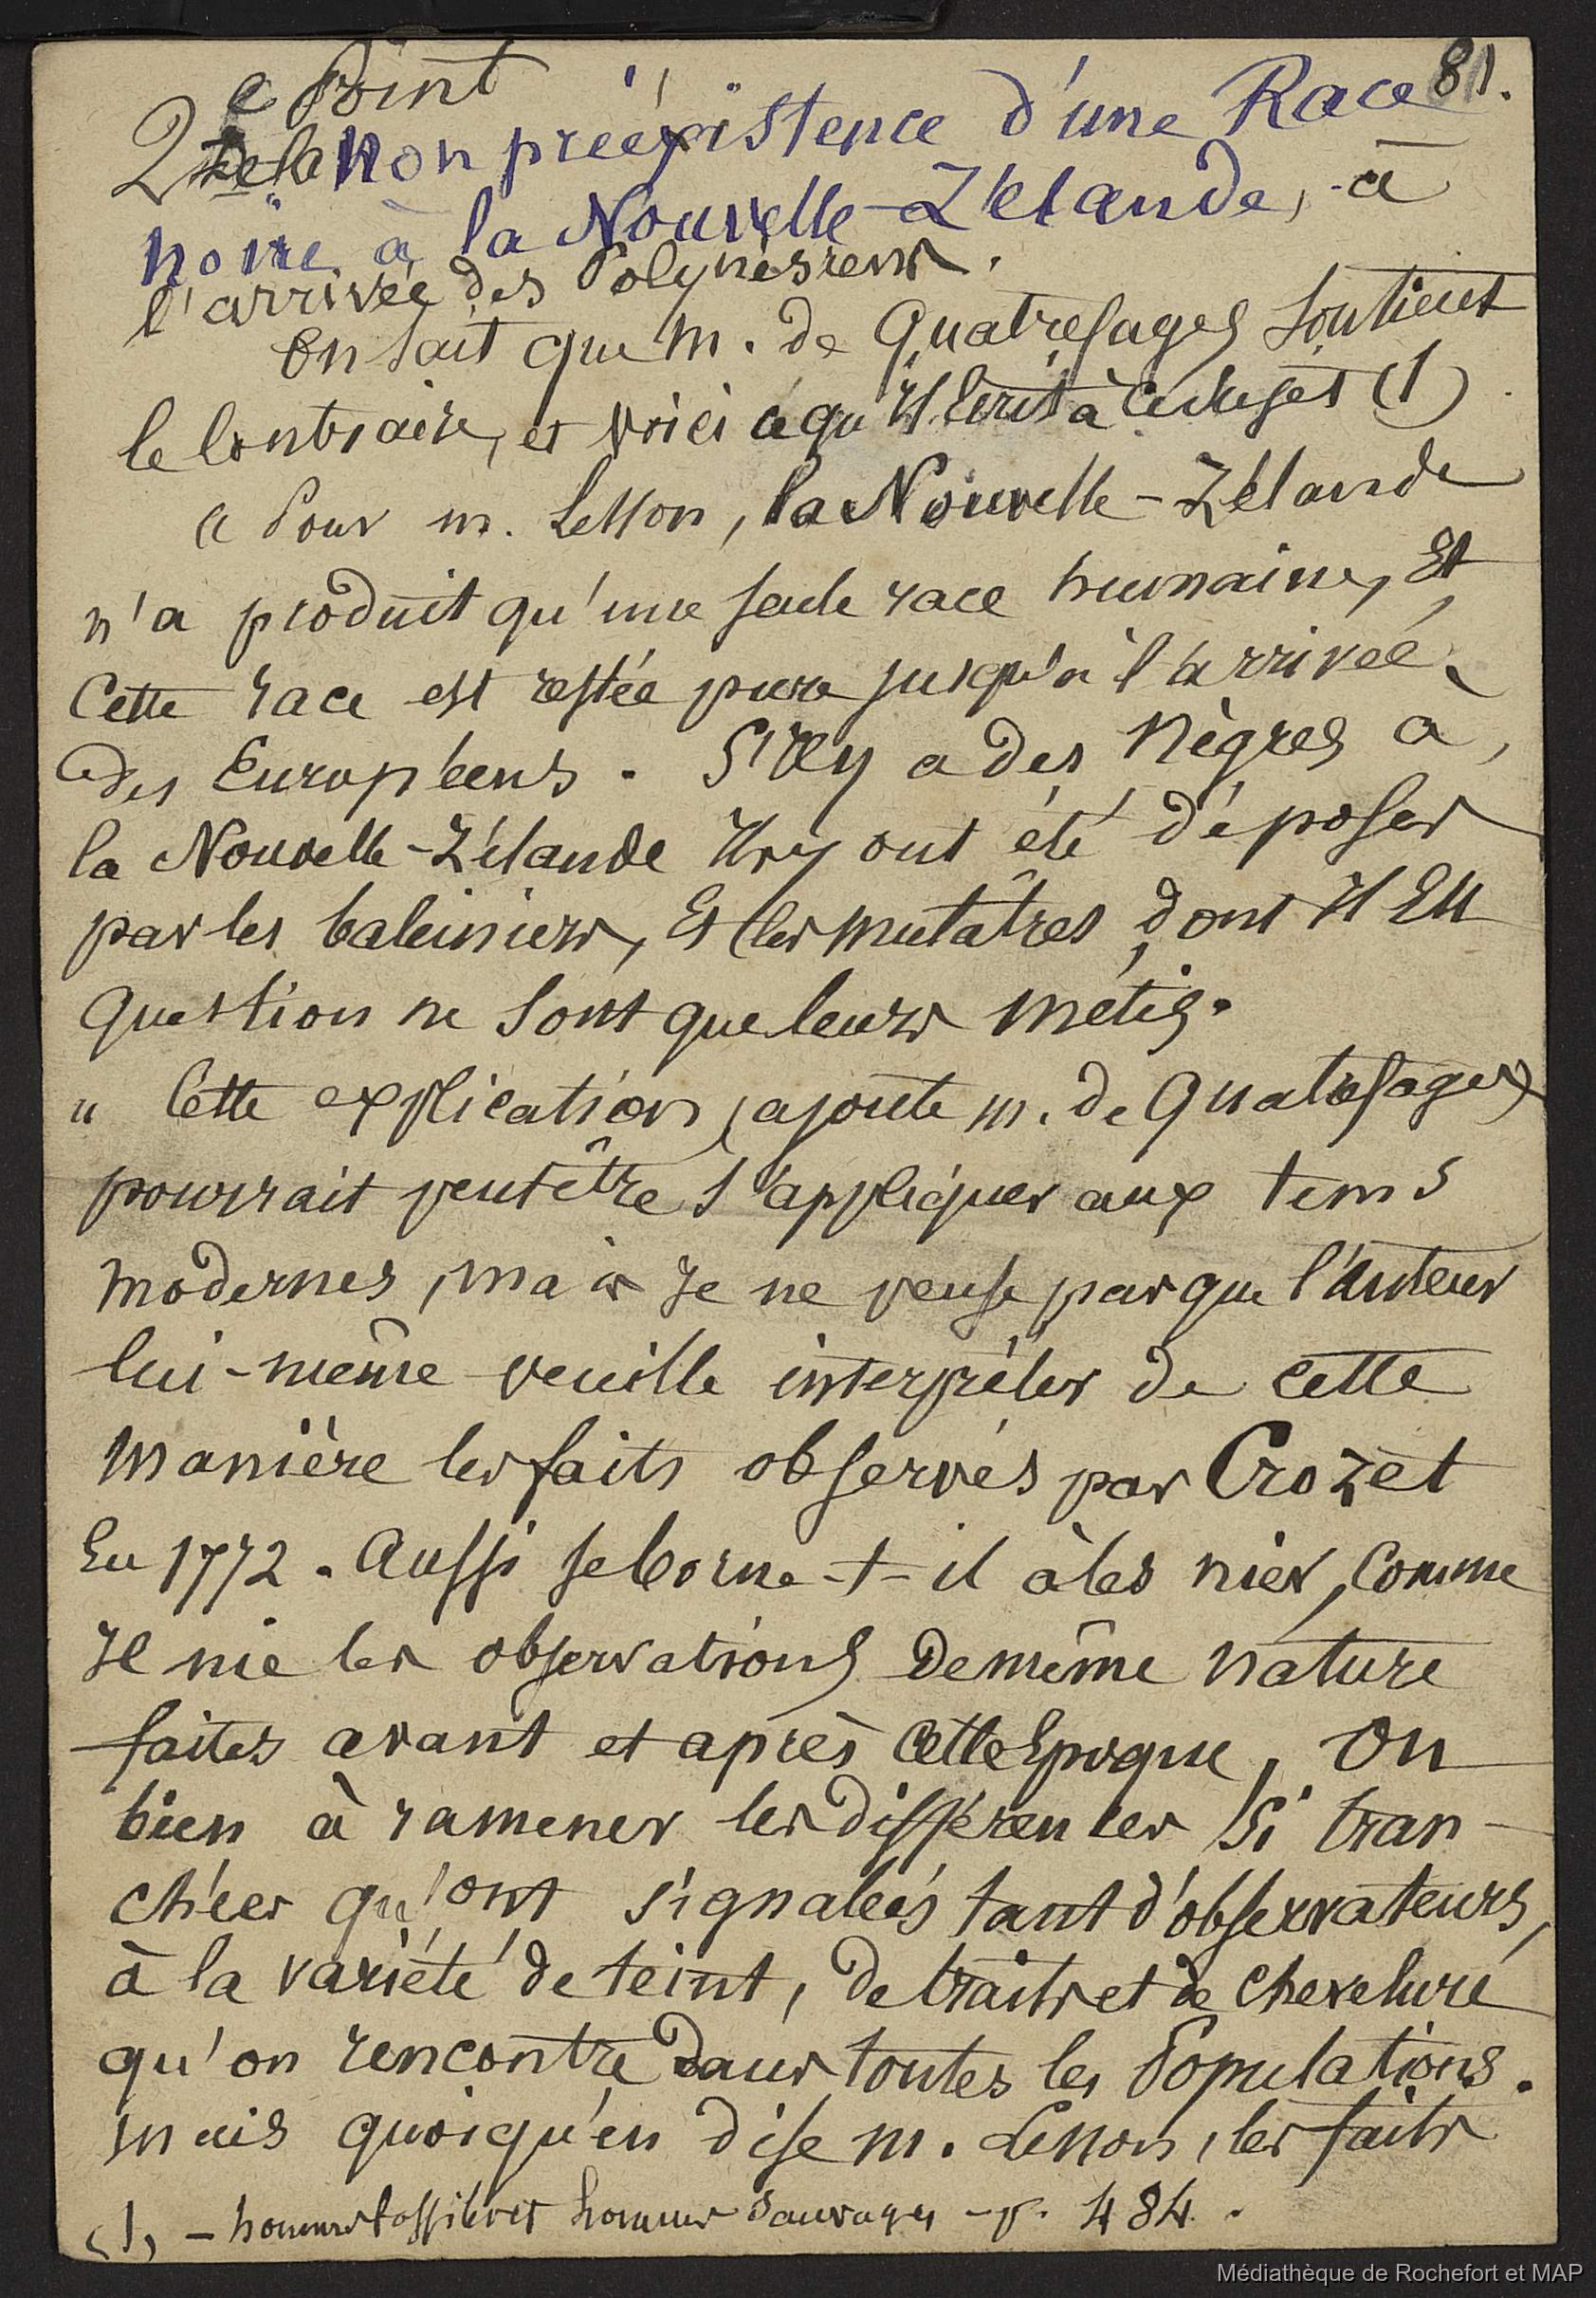 81.
2e Point
De la Non préexistence d'une Race
noire à la Nouvelle-Zélande, à
l'arrivée des Polynésiens.
On sait que M. de Quatrefages soutient
le contraire, et voici ce qu'il écrit à ce sujet (1)
« Pour M. Lesson, la Nouvelle-Zélande
n'a produit qu'une seule race humaine, Et
Cette race est restée pure jusqu'à l'arrivée
des Européens. S'il y a des Nègres à
la Nouvelle-Zélande Ils y ont été déposés
par les baleiniers, Et les mulâtres dont il Est
question ne sont que leurs métis.
" Cette explication (ajoute M. de Quatrefages)
pourrait peut être s'appliquer aux tems
modernes, mais Je ne pense pas que l'auteur
lui-même veuille interpréter de cette
manière les faits observés par Crozet
En 1772. Aussi se borne-t-il à les nier, comme
Il nie les observations de même nature
faites avant et après cette Epoque, Ou
bien à ramener les différences si tran-
chées qu'ont signalées tant d'observateurs,
à la variété de teint, de traits et de chevelure
qu'on rencontre dans toutes les Populations.
mais quoiqu'en dise M. Lesson, les faits
(1) - hommes fossiles et hommes Sauvages - p. 484.
Médiathèque de Rochefort et MAP